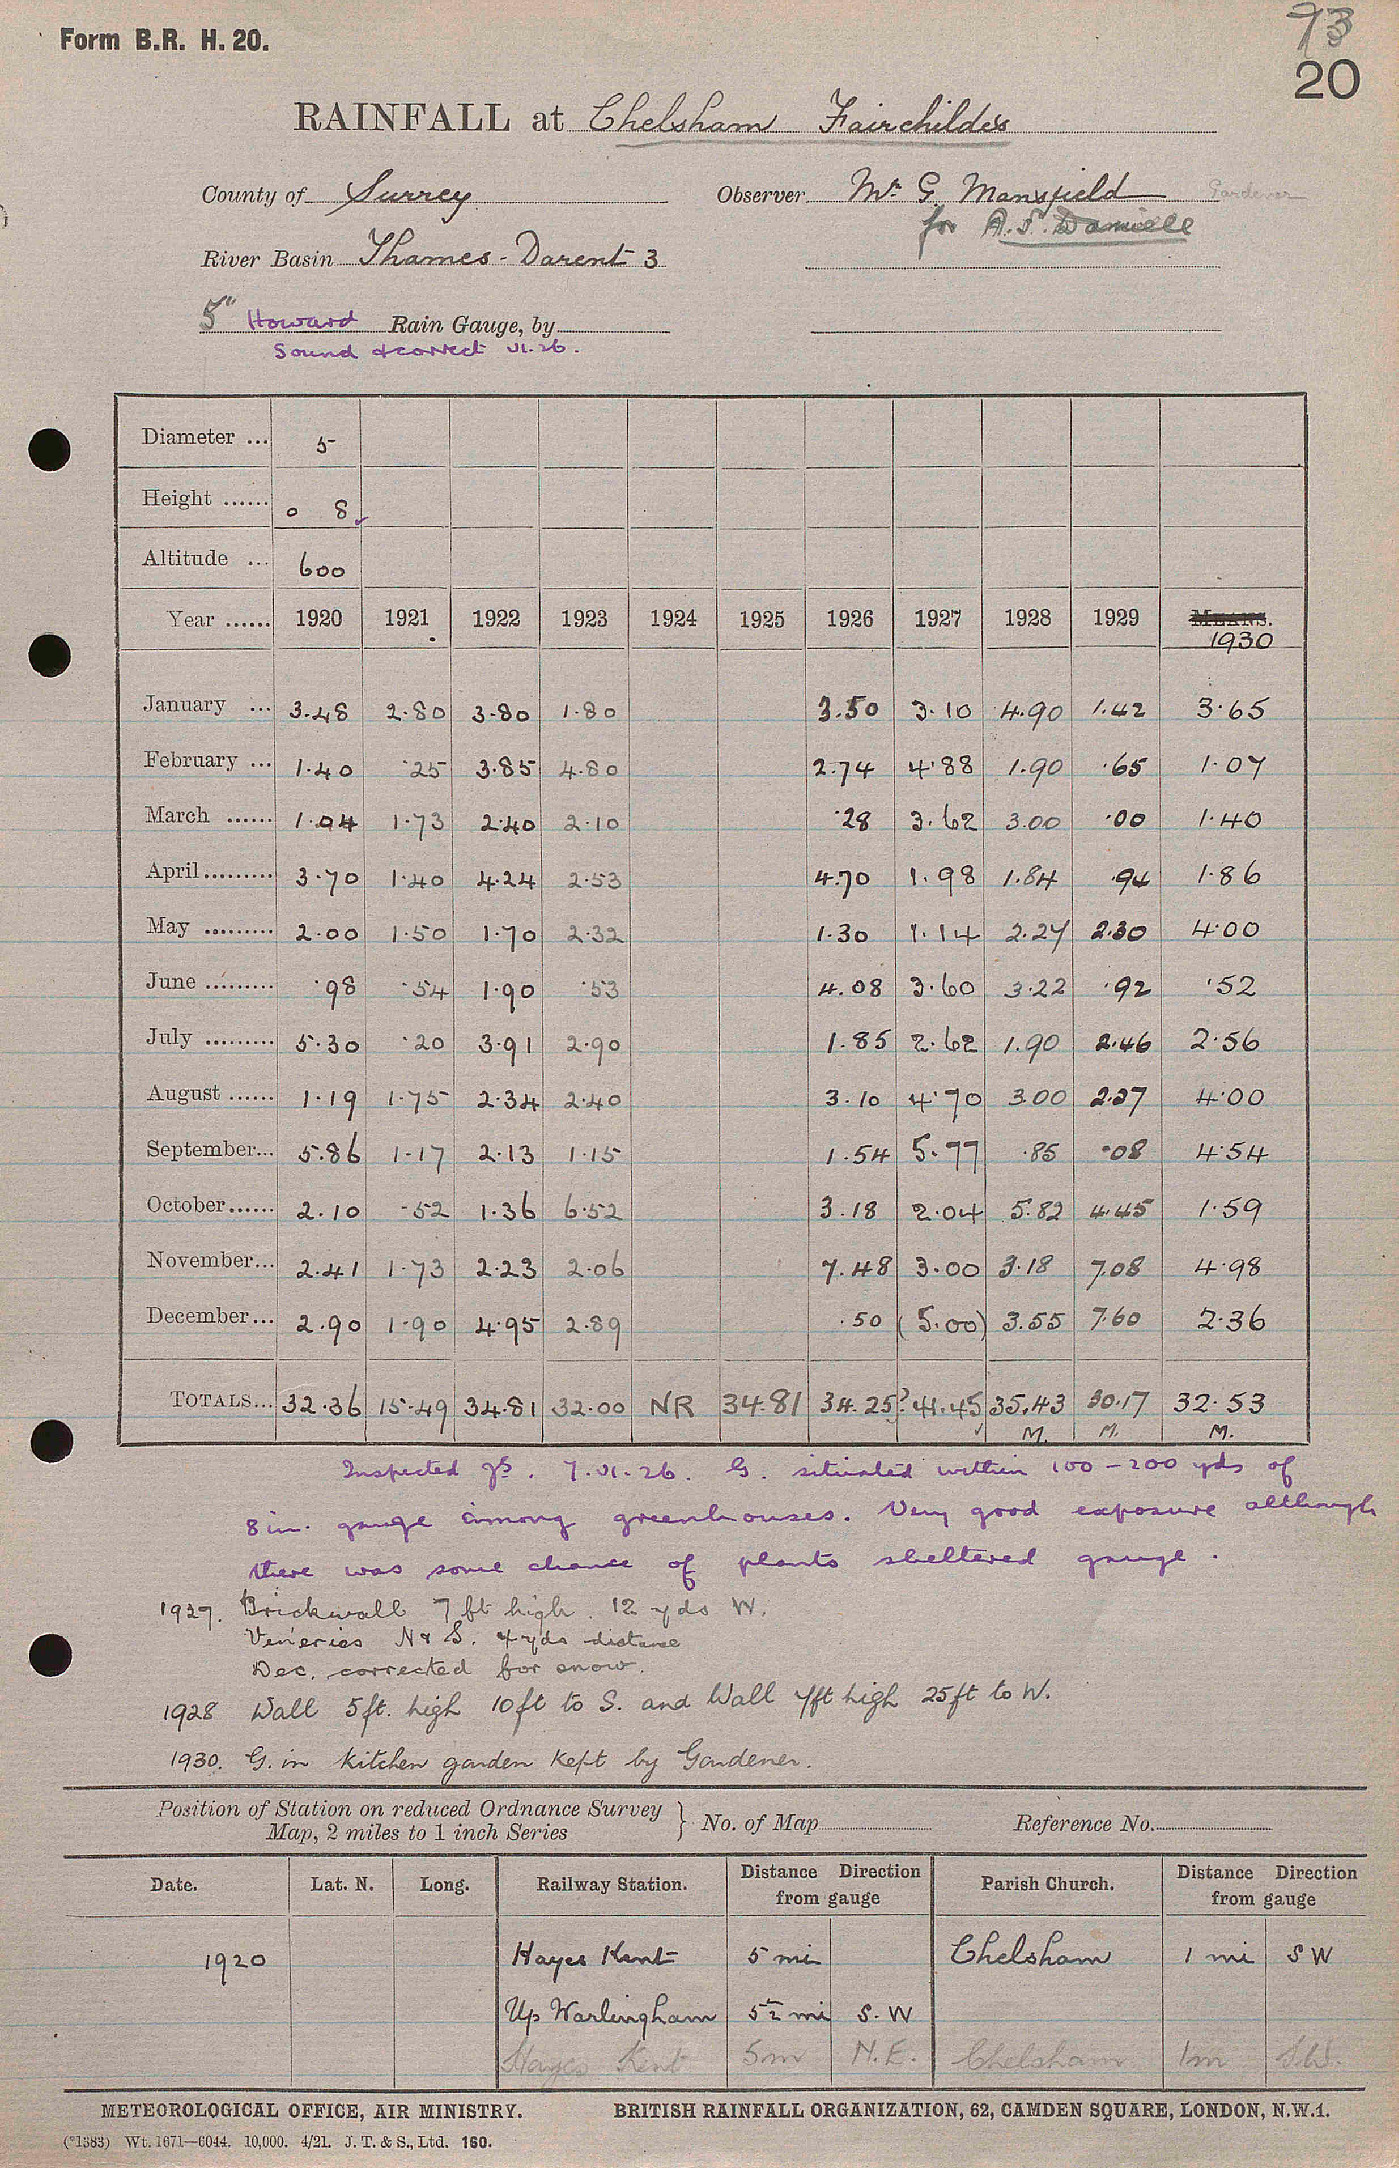 Form B.R. H. 20.
73
20
RAINFALL at Chelsham Fairchildes
County of Surrey Observer Mr. G. Mansfield Gardener
for A.S. Daniell
River Basin Thames - Darent 3
5" Howard Rain Gauge, by
Sound & correct VI.26.
Diameter ... 5
Height ...... 0 8
Altitude ... 600
Year ...... 1920 1921 1922 1923 1924 1925 1926 1927 1928 1929 MEANS. 1930
January ... 3.48 2.80 3.80 1.80 3.50 3.10 4.90 1.42 3.65
February ... 1.40 .25 3.85 4.80 2.74 4.88 1.90 .65 1.07
March ...... 1.04 1.73 2.40 2.10 .28 3.62 3.00 .00 1.40
April ......... 3.70 1.40 4.24 2.53 4.70 1.98 1.84 .94 1.86
May ......... 2.00 1.50 1.70 2.32 1.30 1.14 2.27 2.30 4.00
June ......... .98 .54 1.90 .53 4.08 3.60 3.22 .92 .52
July ......... 5.30 .20 3.91 2.90 1.85 2.62 1.90 2.46 2.56
August ...... 1.19 1.75 2.34 2.40 3.10 4.70 3.00 2.27 4.00
September... 5.86 1.17 2.13 1.15 1.54 5.77 .85 .08 4.54
October...... 2.10 .52 1.36 6.52 3.18 2.04 5.82 4.45 1.59
November... 2.41 1.73 2.23 2.06 7.48 3.00 3.18 7.08 4.98
December... 2.90 1.90 4.95 2.89 .50 (5.00) 3.55 7.60 2.36
TOTALS... 32.36 15.49 34.81 32.00 NR 34.81 34.25? 41.45 35.43 30.17 32.53
M. M. M.
Inspected 7.VI.26. G. situated within 100-200 yds of
8in. gauge among greenhouses. Very good exposure although
there was some chance of plants sheltered gauge.
1927. Brickwall 7 ft high. 12 yds W.
Vineries N & S. 4 yds distance
Dec. corrected for snow.
1928 Wall 5ft. high 10ft to S. and Wall 7ft high 25ft to W.
1930. G. in kitchen garden kept by Gardener.
Position of Station on reduced Ordnance Survey
Map, 2 miles to 1 inch Series } No. of Map Reference No.
Date. Lat. N. Long. Railway Station. Distance Direction from gauge Parish Church. Distance Direction from gauge
1920 Hayes Kent 5 mi Chelsham 1 mi SW
Up Warlingham 5½ mi S.W
Hayes Kent 5m N.E. Chelsham 1m S.W.
METEOROLOGICAL OFFICE, AIR MINISTRY. BRITISH RAINFALL ORGANIZATION, 62, CAMDEN SQUARE, LONDON, N.W.1.
(*1383) Wt. 1671—6044. 10,000. 4/21. J. T. & S., Ltd. 160.